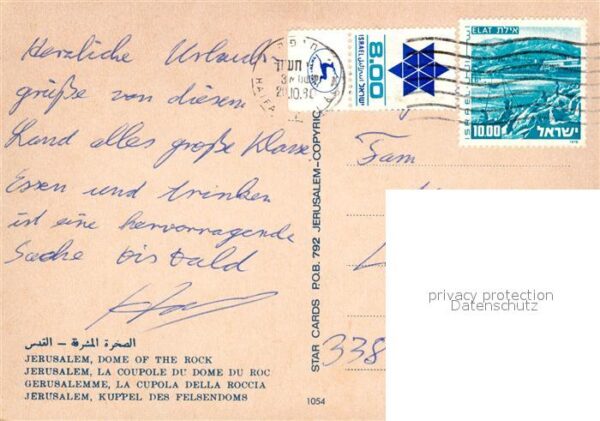 Herzliche Urlaubs
grüße von diesem
Land alles große Klasse
Essen und trinken
ist eine hervorragende
Sache bis bald
الصخرة المشرفة — القدس
JERUSALEM, DOME OF THE ROCK
JERUSALEM, LA COUPOLE DU DOME DU ROC
GERUSALEMME, LA CUPOLA DELLA ROCCIA
JERUSALEM, KUPPEL DES FELSENDOMS
1054
STAR CARDS P.O.B. 792 JERUSALEM-COPYRIG
HAIFA
ISRAEL اسرائيل ישראל
8.00
ELAT אילת
ISRAEL
10.00 ישראל
Fam
338
privacy protection
Datenschutz